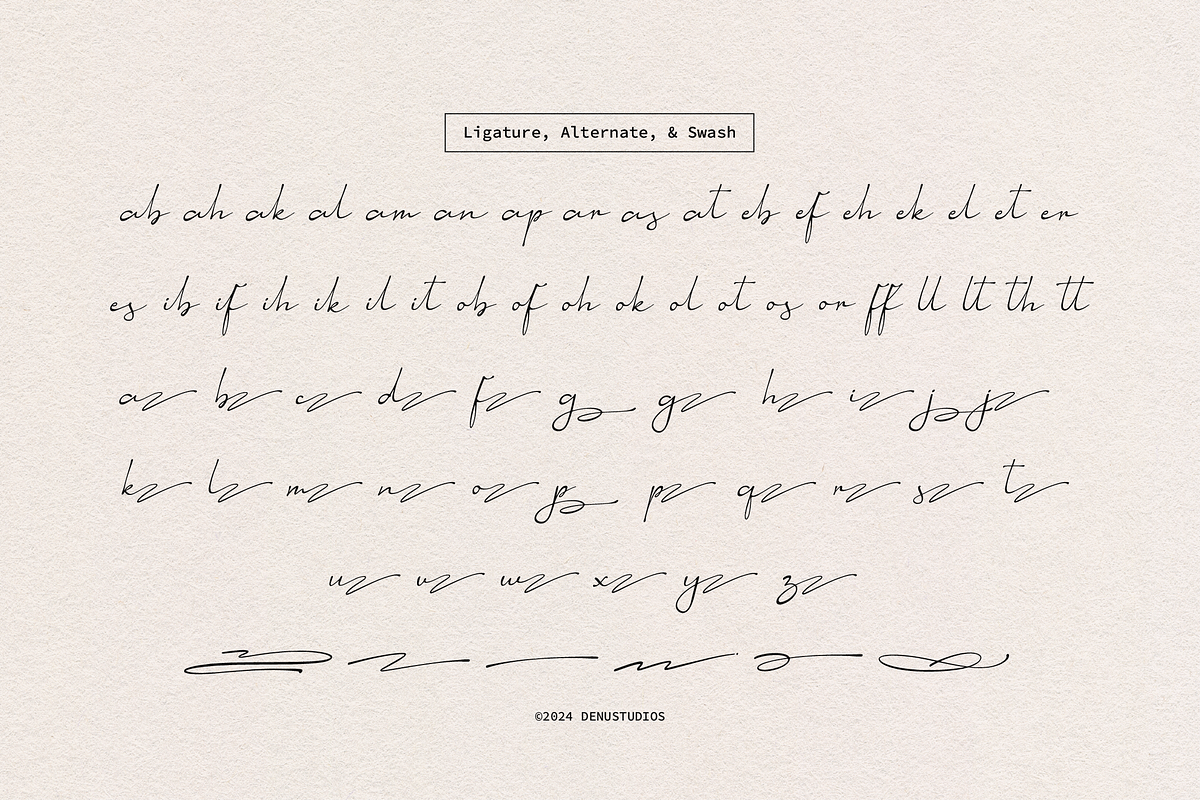 Ligature, Alternate, & Swash
ab ah ak al am an ap ar as at eb ef eh ek el et er
es ib if ih ik il it ob of oh ok ol ot os or ff ll lt th tt
a b c d f g g h i j j
k l m n o p p q r s t
u v w x y z
©2024 DENUSTUDIOS